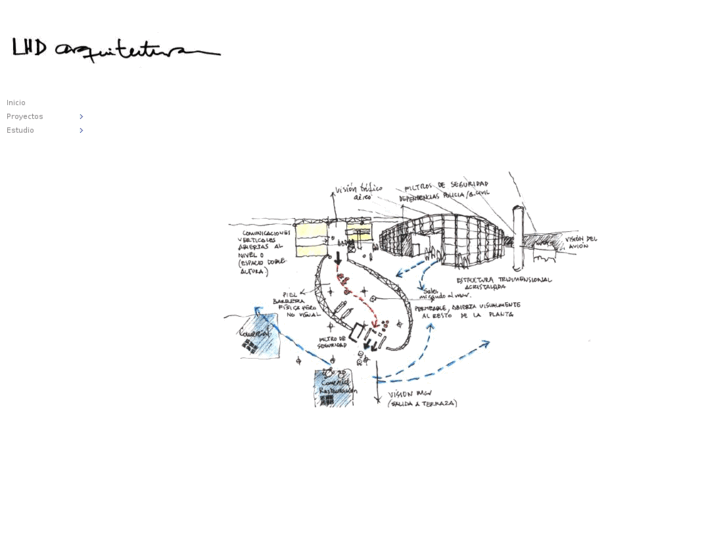 LHD arquitectura
Inicio
Proyectos
Estudio
visión tráfico
aéreo
FILTROS DE SEGURIDAD
DEPENDENCIAS POLICIA/G.CIVIL
COMUNICACIONES
VERTICALES
ABIERTAS AL
NIVEL 0
(ESPACIO DOBLE
ALTURA)
VISIÓN DEL
AVIÓN
ESTRUCTURA TRIDIMENSIONAL
ACRISTALADA
PIEL
BARRERA
FÍSICA PERO
NO VISUAL
mirando al mar.
PERMEABLE, ABIERTA VISUALMENTE
AL RESTO DE LA PLANTA
FILTRO DE
SEGURIDAD
Comercial
Comercial
Restauración
VISIÓN
(SALIDA A TERRAZA)